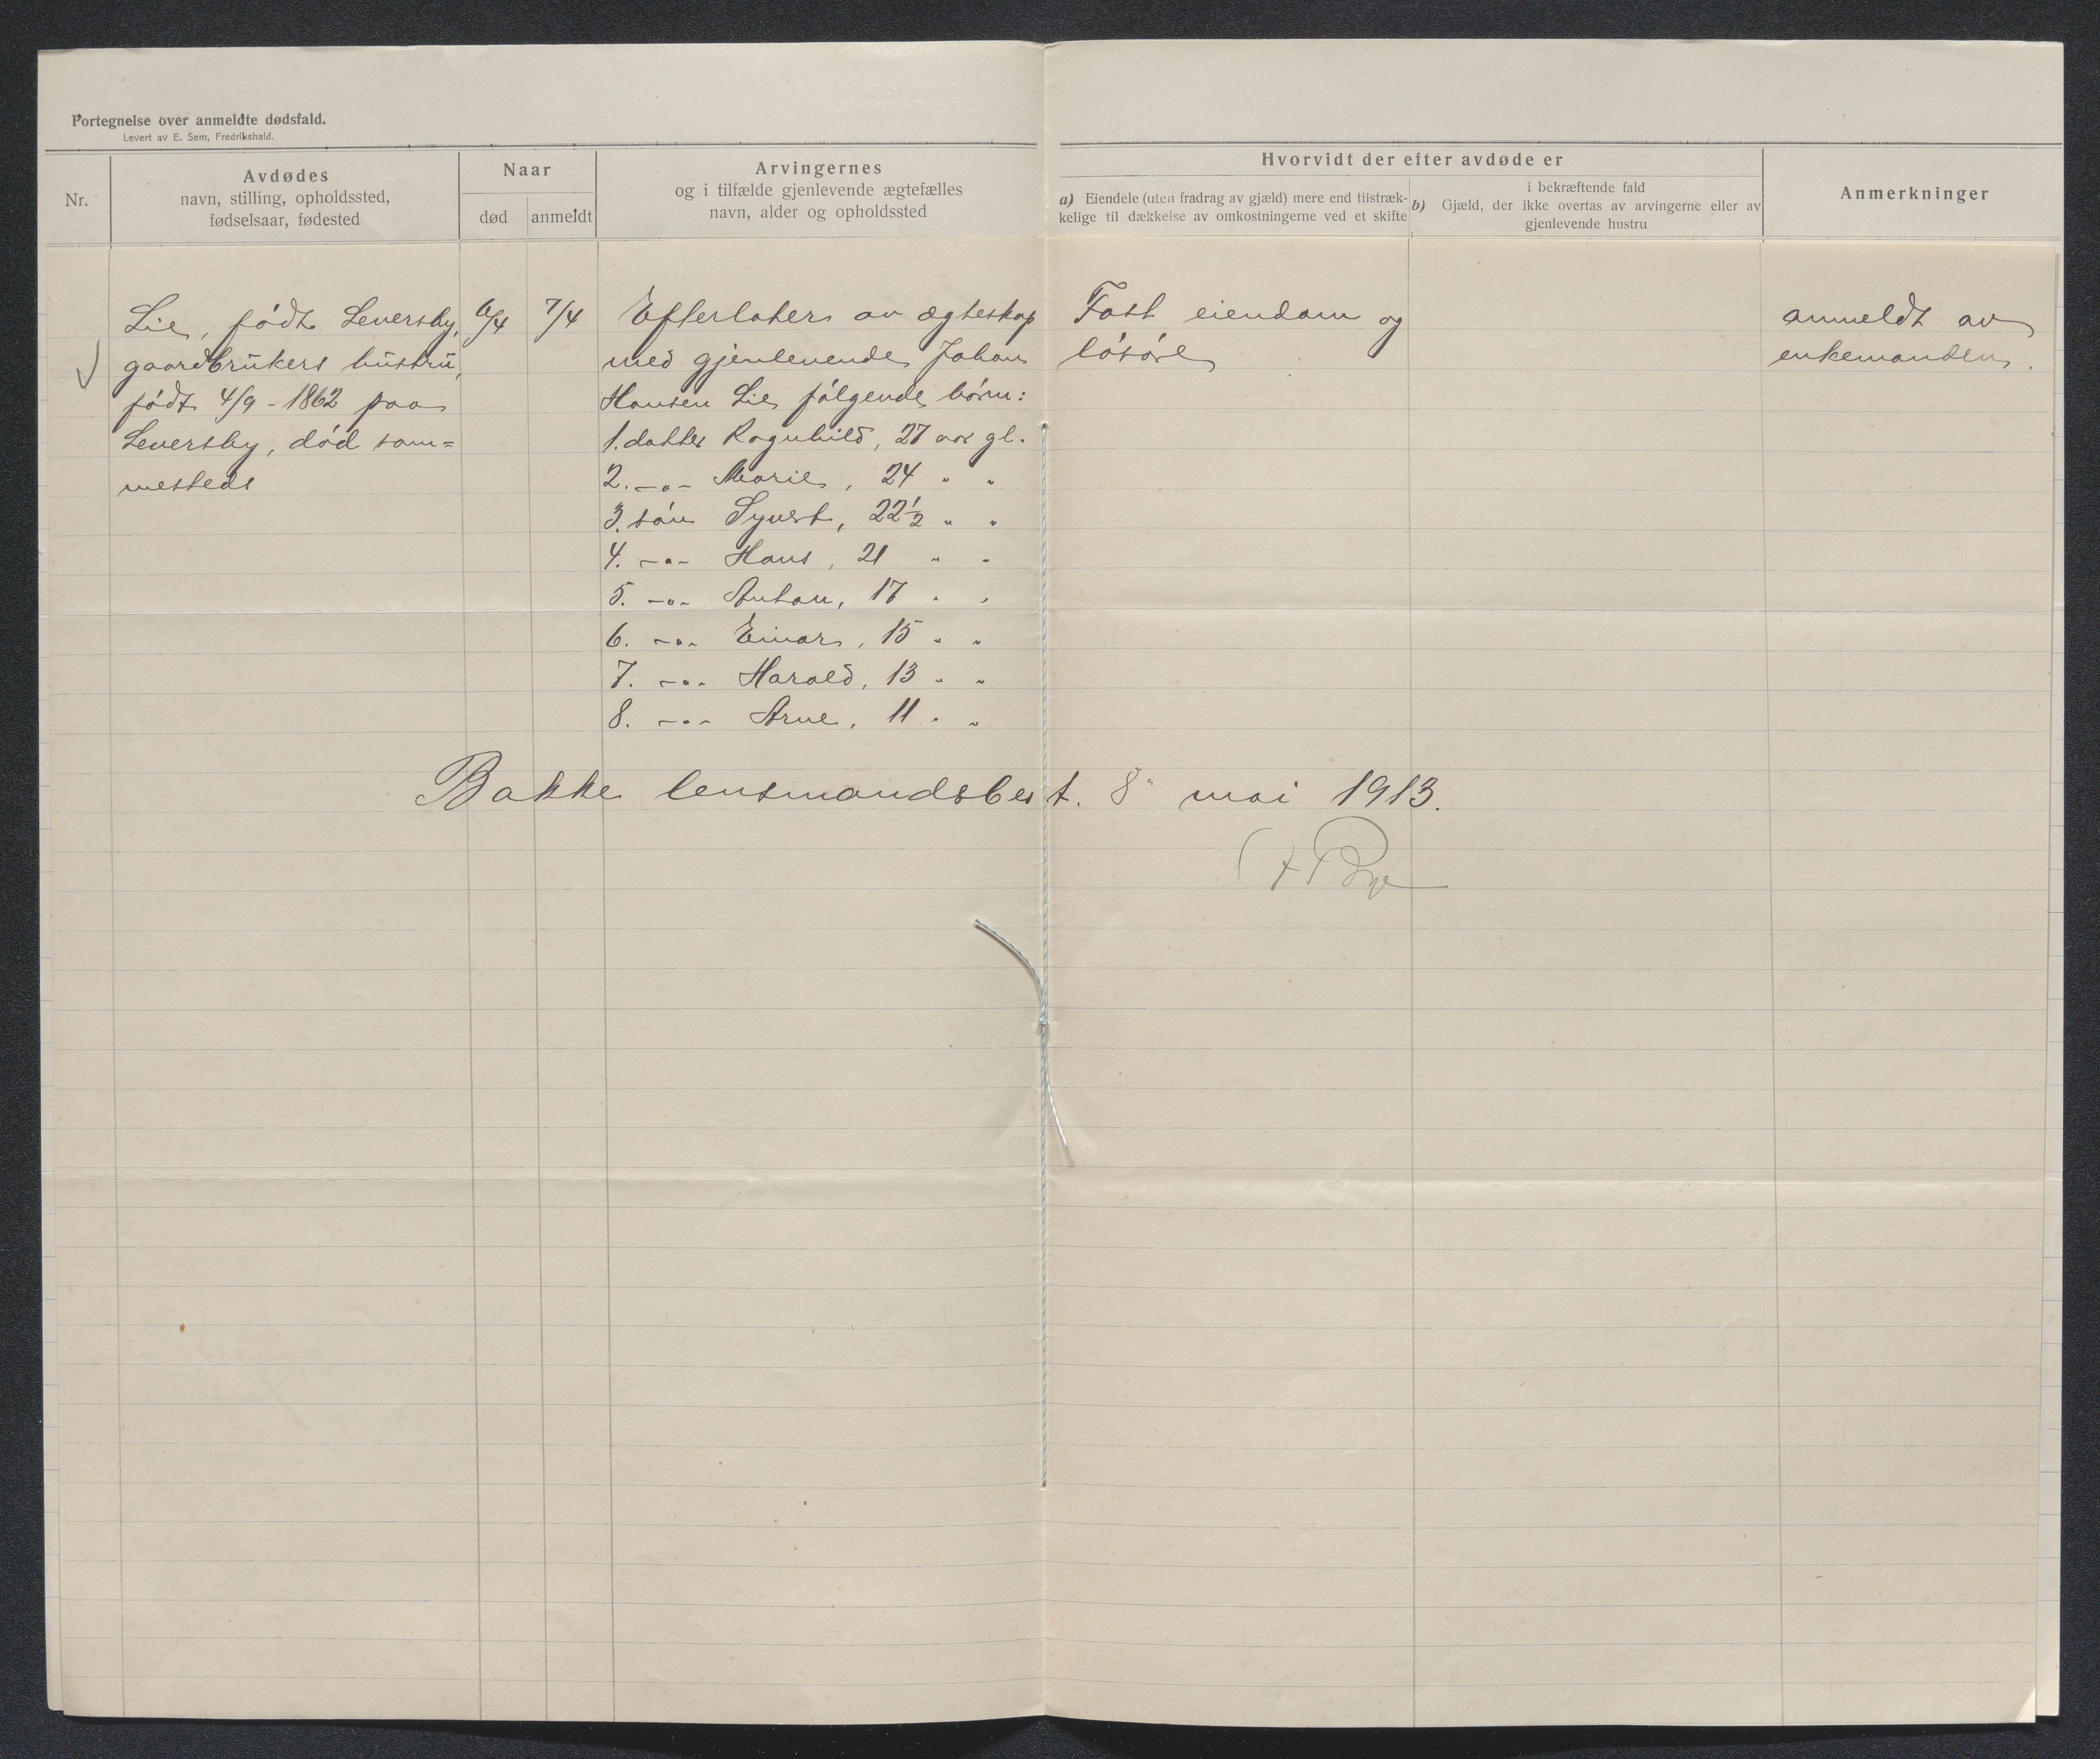 Fortegnelse over anmeldte dødsfald.
Levert av E. Sem, Fredrikshald.
Nr.
Avdødes
navn, stilling, opholdssted,
fødselsaar, fødested
Naar
død
anmeldt
Arvingernes
og i tilfælde gjenlevende ægtefælles
navn, alder og opholdssted
Hvorvidt der efter avdøde er
a) Eiendele (uten fradrag av gjæld) mere end tilstræk-
kelige til dækkelse av omkostningerne ved et skifte
i bekræftende fald
b) Gjæld, der ikke overtas av arvingerne eller av
gjenlevende hustru
Anmerkninger
Lie, født Leversby,
gaardbrukers hustru,
født 4/9 - 1862 paa
Leversby, død sam=
mesteds
6/4
7/4
Efterlater av ægteskap
med gjenlevende Johan
Hansen Lie følgende børn:
1. datter Ragnhild, 27 aar gl.
2. -"- Marie, 24 " "
3. søn Syvert, 22½ " "
4. -"- Hans, 21 " "
5. -"- Anton, 17 " "
6. -"- Einar, 15 " "
7. -"- Harald, 13 " "
8. -"- Arne, 11 " "
Fast eiendom og
løsøre
anmeldt av
enkemanden.
Bakke lensmandsbest. 8" mai 1913.